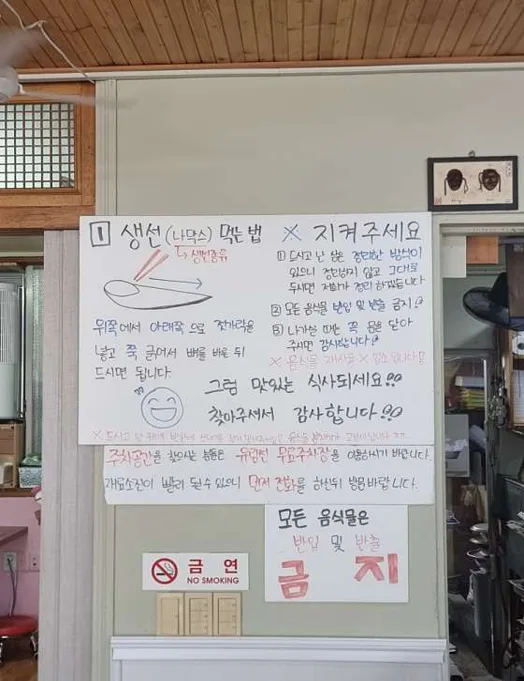 1 생선 (나막스) 먹는법
→ 생선종류
위쪽에서 아래쪽으로 젓가락을
넣고 쭉 긁어서 뼈를 바른 뒤
드시면 됩니다.
※ 지켜주세요
① 드시고 난 상은 정리한 방식이
있으니 정리하지 않고 그대로
두시면 저희가 정리 하겠습니다
② 모든 음식물 반입 및 반출 금지!
③ 나가실 때는 쭉 문을 닫아
주시면 감사합니다!
※ 음식물 재사용 ✕
그럼 맛있는 식사되세요!!
찾아주셔서 감사합니다!!
※ 드시고 난
주차공간을 찾으시는 분들은 유림인 무료주차장을 이용하시기 바랍니다.
재료소진이 빨리 될수 있으니 먼저 전화를 하신뒤 방문바랍니다.
모든 음식물은
반입 및 반출
금지
금연
NO SMOKING